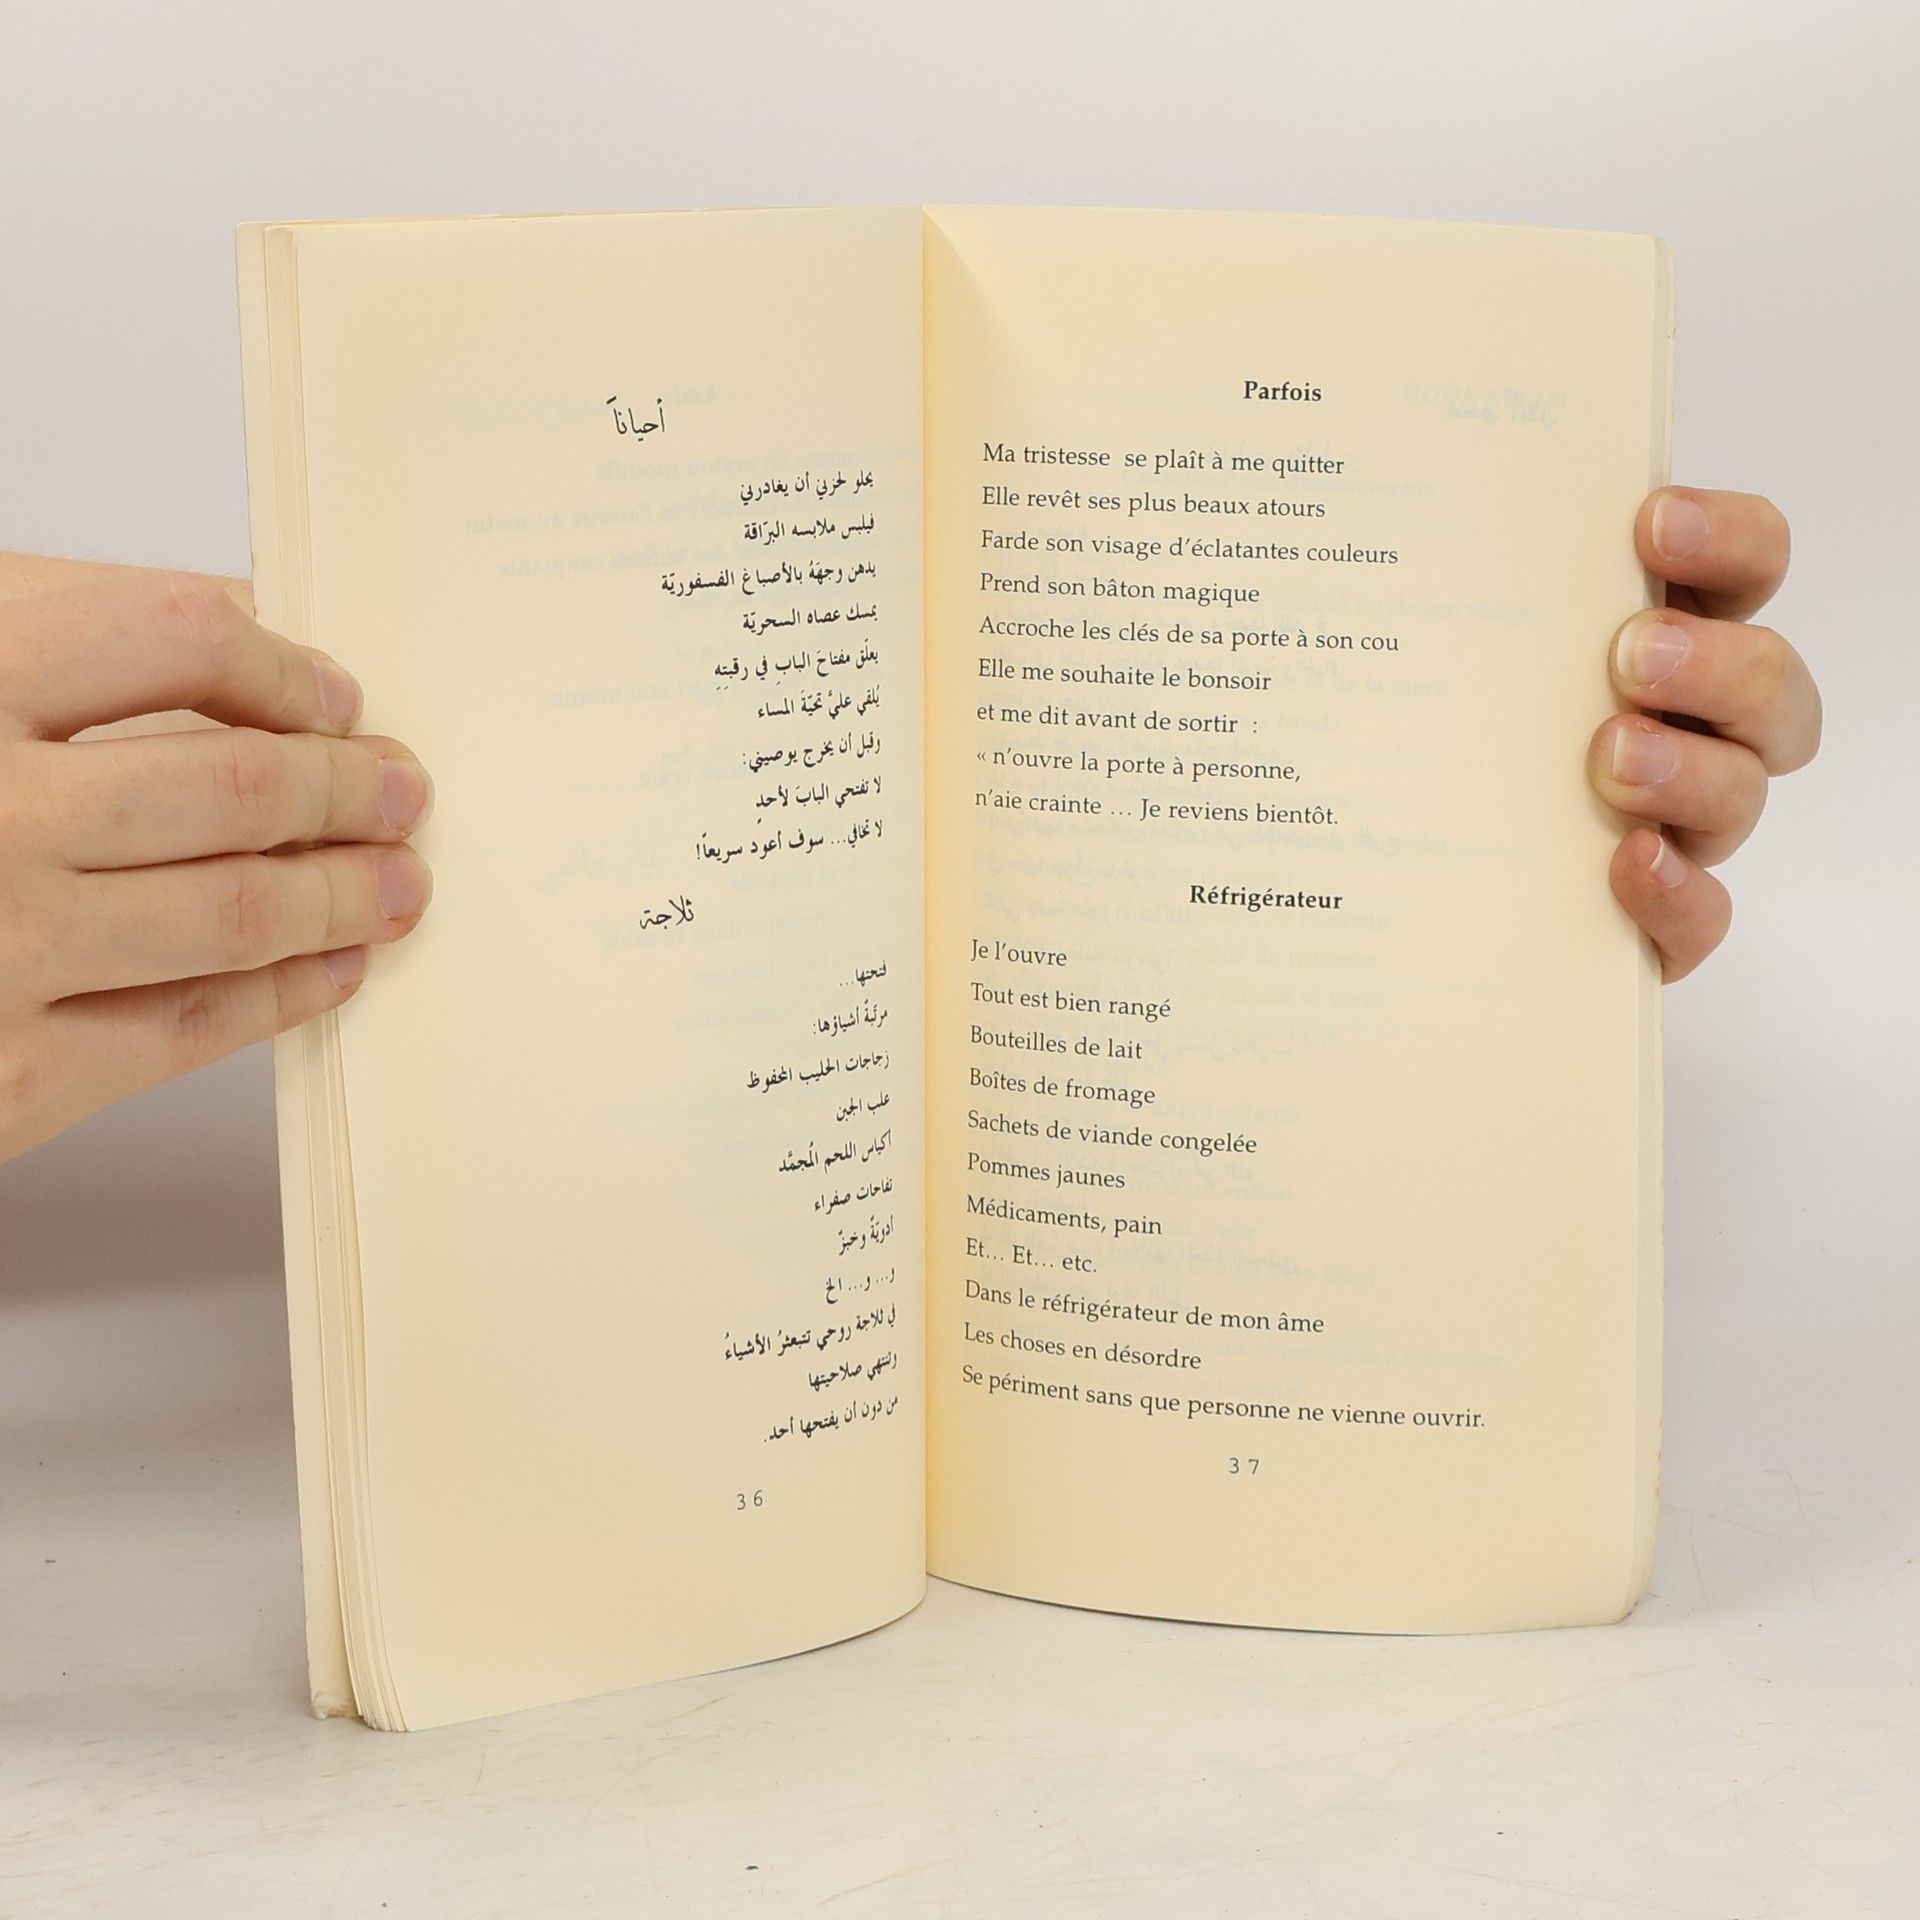 أحياناً
يحلو لحزني أن يغادرني
فيلبس ملابسه البرّاقة
يدهن وجهَهُ بالأصباغ الفسفوريّة
يمسك عصاه السحريّة
يعلّق مفتاحَ البابِ في رقبتِهِ
يُلقي عليَّ تحيّةَ المساء
وقبل أن يخرج يوصيني:
لا تفتحي البابَ لأحدٍ
لا تخافي... سوف أعود سريعاً!
ثلاجة
فتحتها...
مرتَّبةٌ أشياؤها:
زجاجات الحليب المحفوظ
علب الجبن
أكياس اللحم المُجمَّد
تفاحات صفراء
أدويّةٌ وخبزٌ
و... و... الخ
في ثلاجة روحي تتبعثرُ الأشياءُ
وتنتهي صلاحيتها
من دون أن يفتحها أحد.
36
Parfois
Ma tristesse se plaît à me quitter
Elle revêt ses plus beaux atours
Farde son visage d’éclatantes couleurs
Prend son bâton magique
Accroche les clés de sa porte à son cou
Elle me souhaite le bonsoir
et me dit avant de sortir :
« n’ouvre la porte à personne,
n’aie crainte … Je reviens bientôt.
Réfrigérateur
Je l’ouvre
Tout est bien rangé
Bouteilles de lait
Boîtes de fromage
Sachets de viande congelée
Pommes jaunes
Médicaments, pain
Et… Et… etc.
Dans le réfrigérateur de mon âme
Les choses en désordre
Se périment sans que personne ne vienne ouvrir.
37